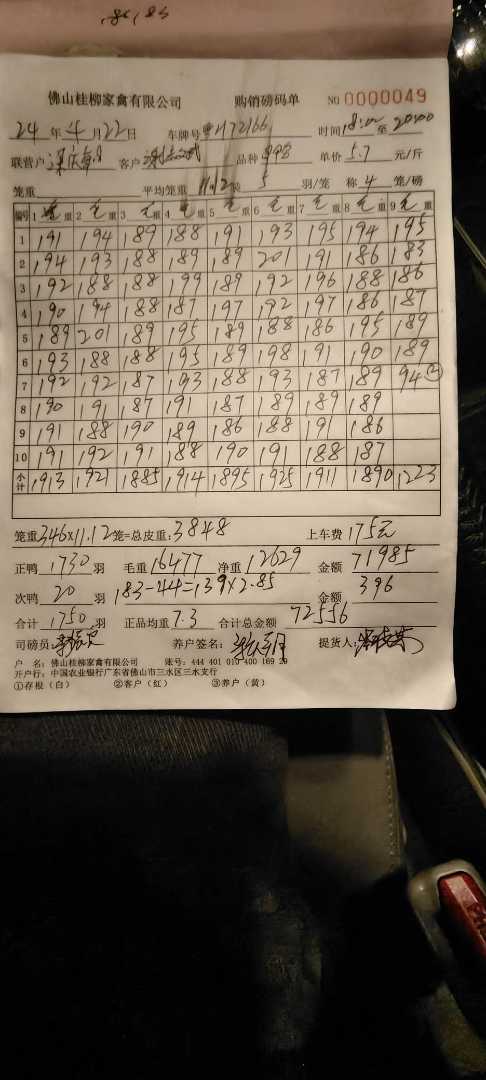 186,183
佛山桂柳家禽有限公司 购销磅码单 NO 0000049
24年4月22日 车牌号 H72166 时间18:00至20:00
联营户 客户 品种 单价5.7元/斤
笼重 平均笼重11.12 5羽/笼 称4笼/磅
编号 1毛重 2毛重 3毛重 4毛重 5毛重 6毛重 7毛重 8毛重 9毛重
1 191 194 189 188 191 193 195 194 195
2 194 193 188 189 189 201 191 186 183
3 192 188 188 199 189 192 196 188 186
4 190 194 188 187 197 192 197 186 187
5 189 201 189 195 189 188 186 195 189
6 193 188 188 195 189 198 191 190 189
7 192 192 187 193 188 193 187 189 94②
8 190 191 187 191 187 189 189 189
9 191 188 190 189 186 188 191 186
10 191 192 191 188 190 191 188 187
小计 1913 1921 1885 1914 1895 1925 1911 1890 1223
笼重346×11.12笼=总皮重:3848 上车费175元
正鸭1730羽 毛重16477 净重12629 金额71985
次鸭20羽 183-44=139×2.85 金额396
合计1750羽 正品均重7.3 合计总金额72556
司磅员: 养户签名: 提货人:
户 名:佛山桂柳家禽有限公司 账号:444 401 010 400 169 29
开户行:中国农业银行广东省佛山市三水区三水支行
①存根(白) ②客户(红) ③养户(黄)